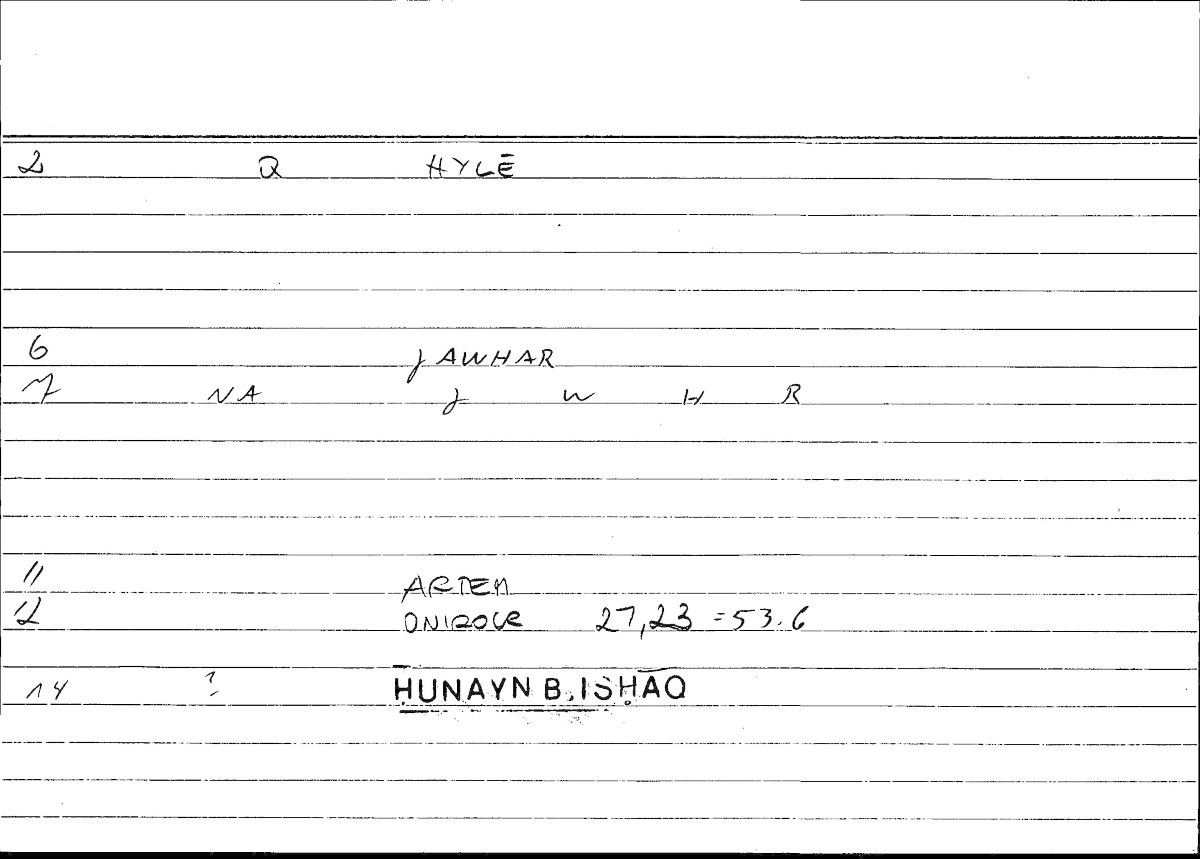 2 Q HYLĒ
6 JAWHAR
7 NA J W H R
11 ARTEM
12 ONIROCR 27,23 = 53.6
14 ? ḤUNAYN B. ISḤĀQ